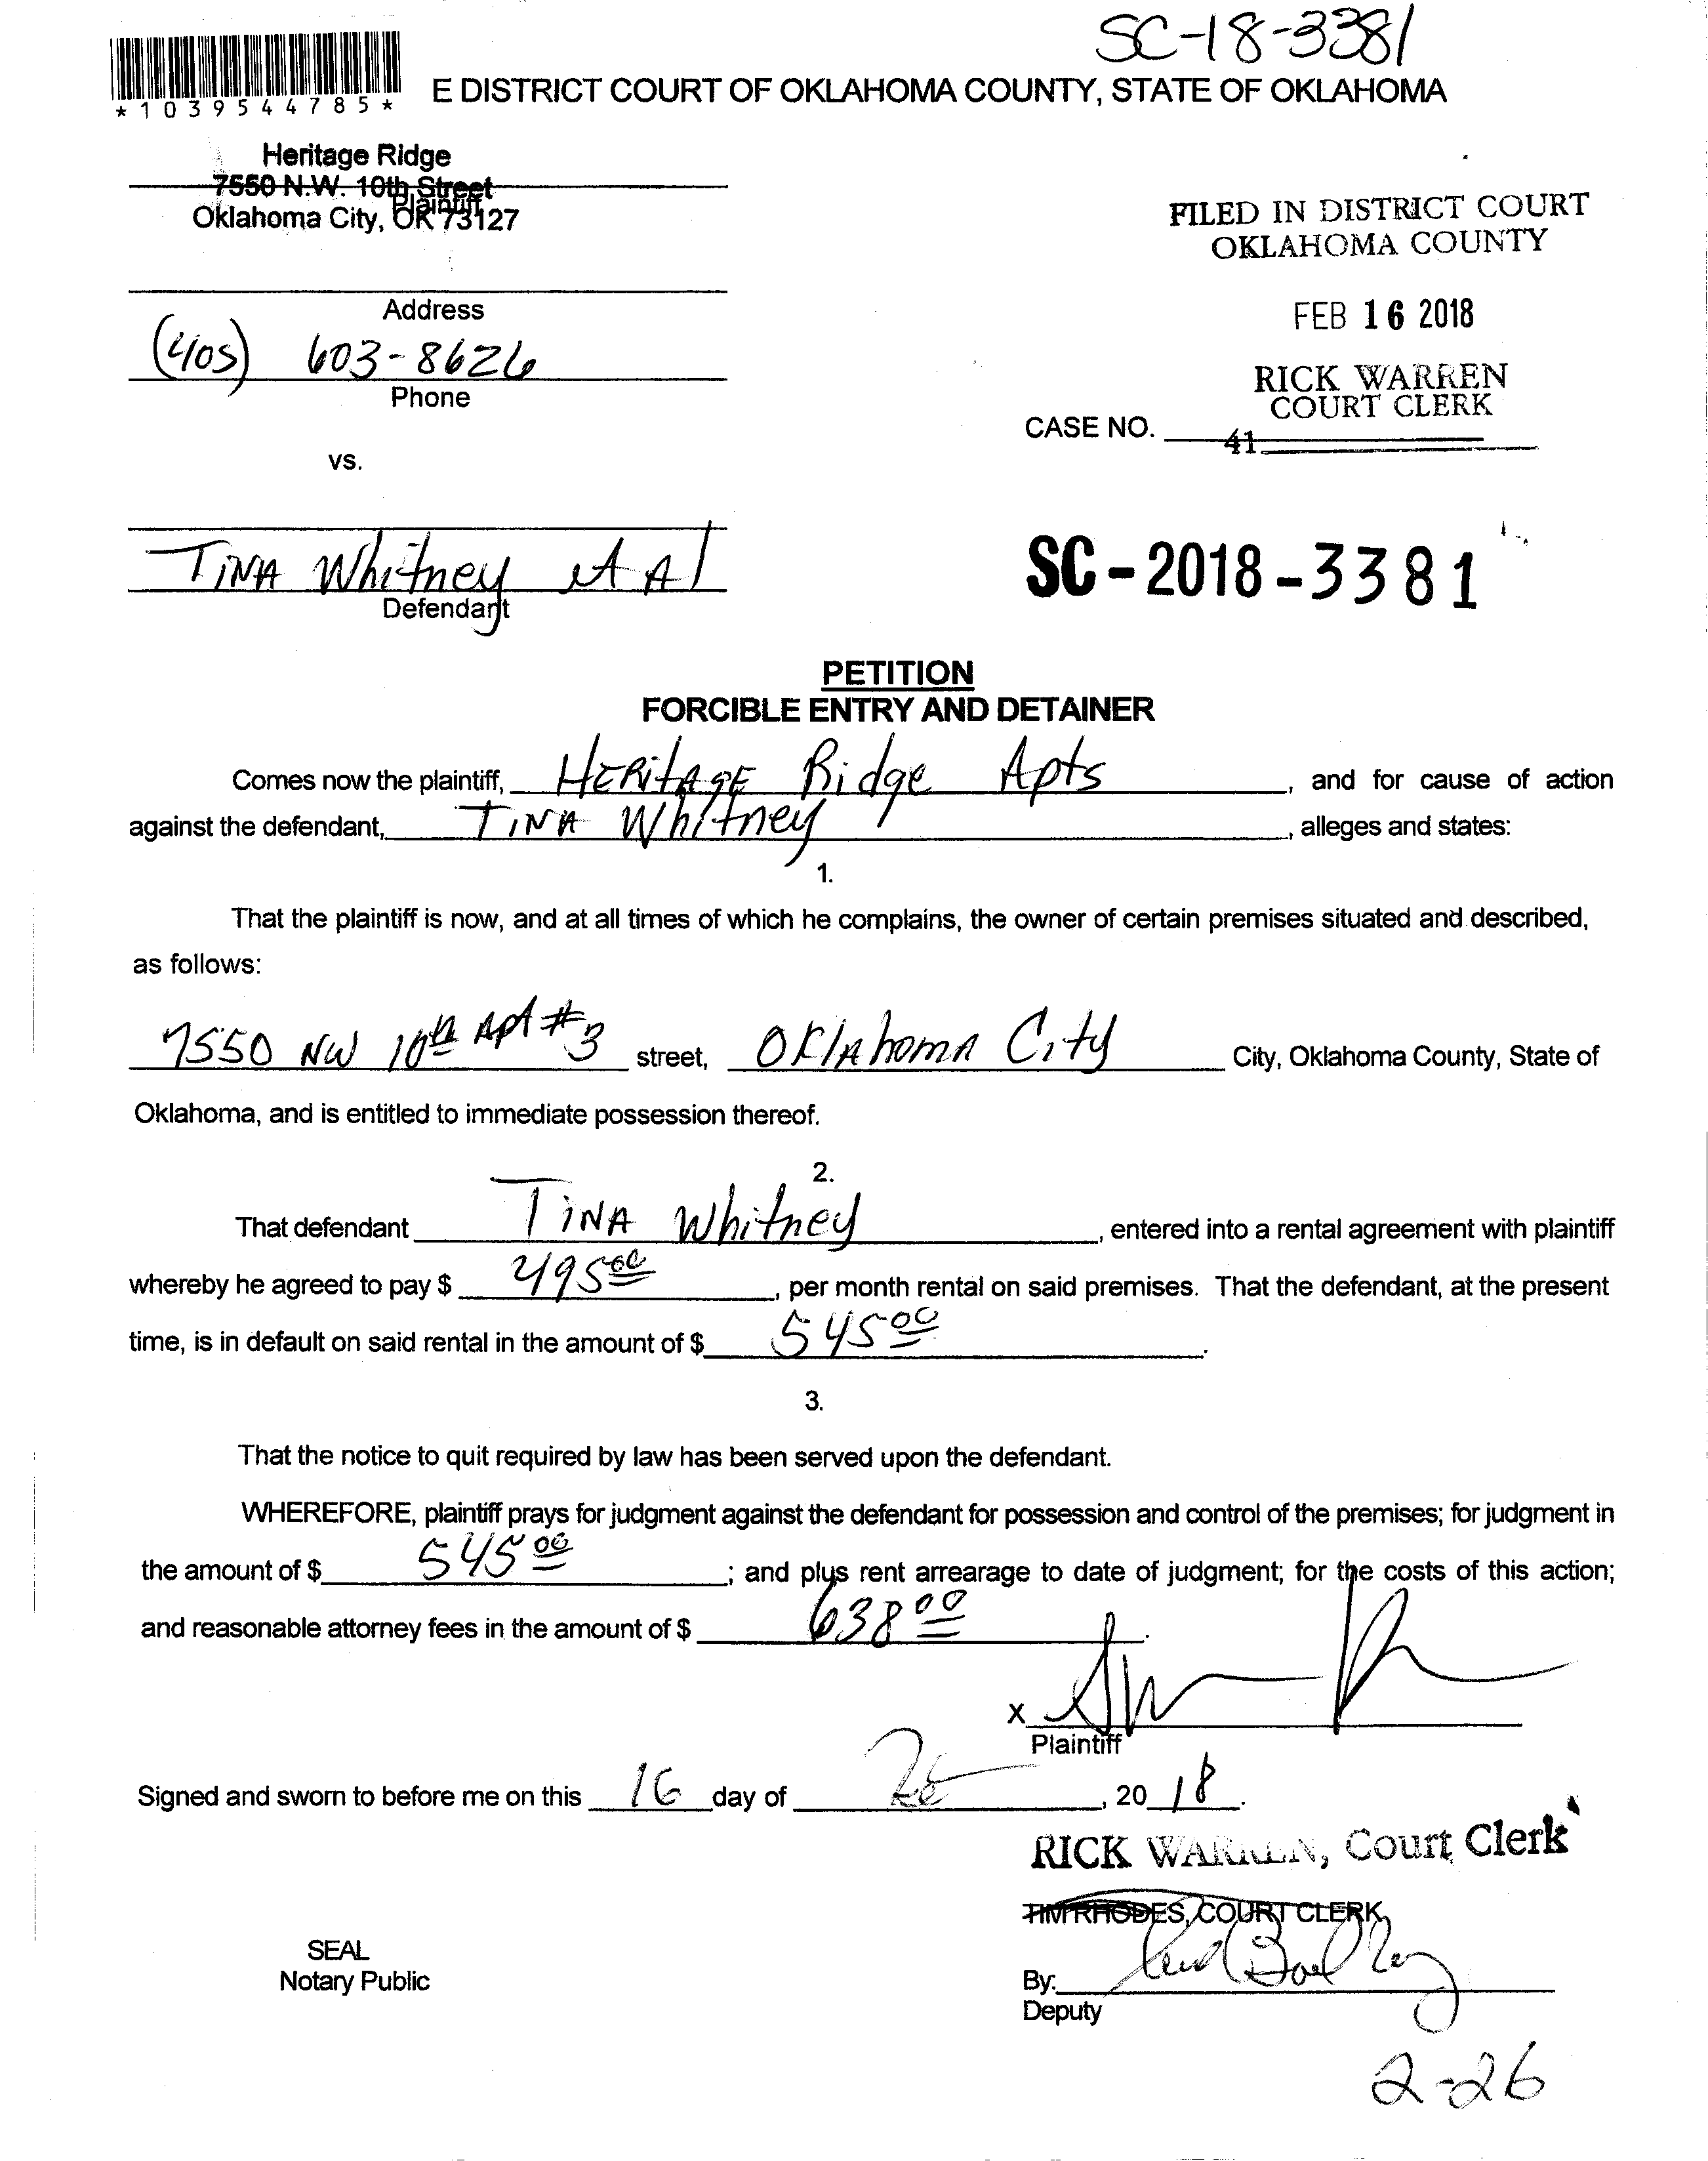 SC-18-3381
*1039544785*
E DISTRICT COURT OF OKLAHOMA COUNTY, STATE OF OKLAHOMA
Heritage Ridge
7550 N.W. 10th Street
Plaintiff
Oklahoma City, OK 73127
FILED IN DISTRICT COURT
OKLAHOMA COUNTY
Address
FEB 16 2018
(405) 603-8626
Phone
RICK WARREN
COURT CLERK
CASE NO.
41
vs.
TINA Whitney et Al
Defendant
SC-2018-3381
PETITION
FORCIBLE ENTRY AND DETAINER
Comes now the plaintiff, HERitAGE Ridge Apts, and for cause of action
against the defendant, TINA Whitney, alleges and states:
1.
That the plaintiff is now, and at all times of which he complains, the owner of certain premises situated and described,
as follows:
7550 NW 10th Apt #3 street, OKlAhomA City City, Oklahoma County, State of
Oklahoma, and is entitled to immediate possession thereof.
2.
That defendant TiNA Whitney, entered into a rental agreement with plaintiff
whereby he agreed to pay $ 495.00, per month rental on said premises. That the defendant, at the present
time, is in default on said rental in the amount of $ 545.00.
3.
That the notice to quit required by law has been served upon the defendant.
WHEREFORE, plaintiff prays for judgment against the defendant for possession and control of the premises; for judgment in
the amount of $ 545.00; and plus rent arrearage to date of judgment; for the costs of this action;
and reasonable attorney fees in the amount of $ 638.00.
X
Plaintiff
Signed and sworn to before me on this 16 day of , 20 18.
RICK WARREN, Court Clerk
TIM RHODES, COURT CLERK
SEAL
Notary Public
By:
Deputy
2-26